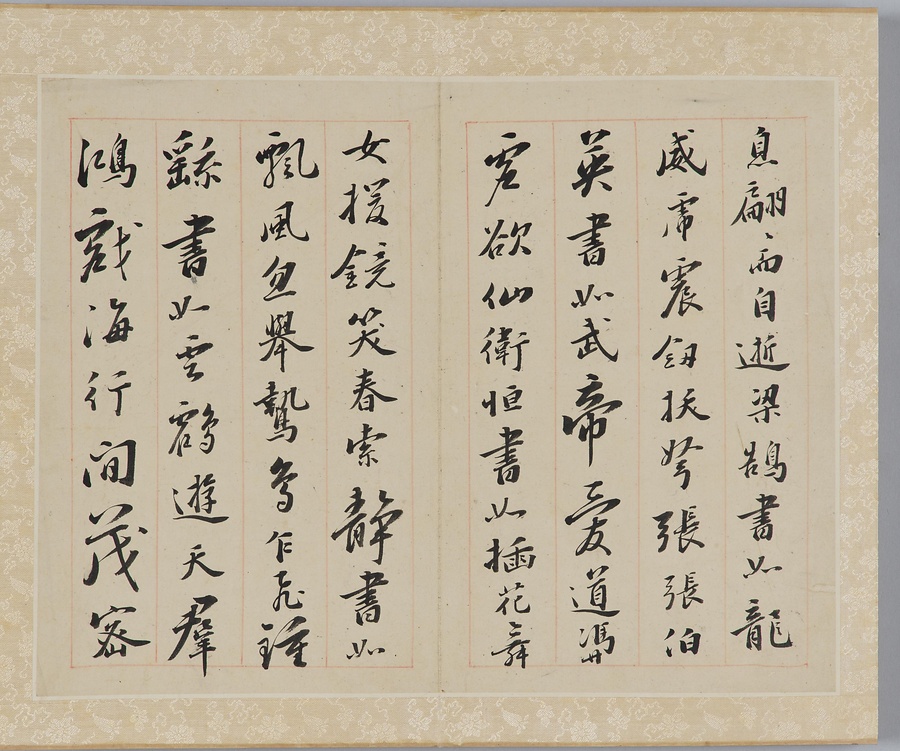 息翩〻而自逝梁鵠書如龍
威虎震劔拔弩張張伯
英書如武帝愛道馮
虛欲仙衛恒書如插花舞
女援鏡笑春索靜書如
飄風忽舉鷙鳥乍飛鍾
繇書如雲鶴遊天羣
鴻戲海行間茂密